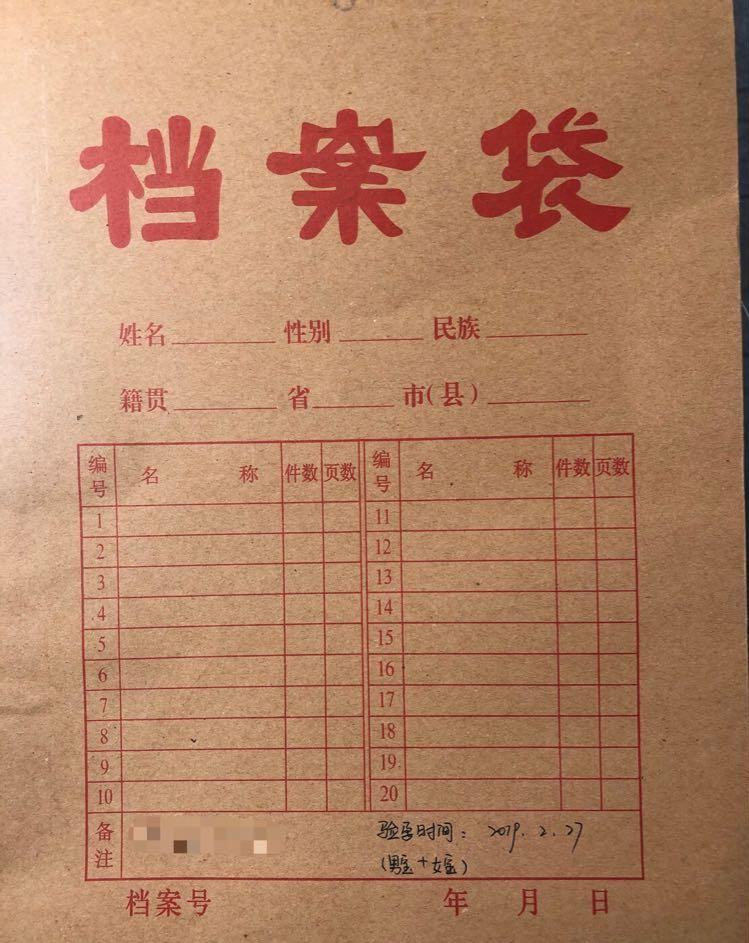 档案袋
姓名 性别 民族
籍贯 省 市(县)
编号 名称 件数 页数 编号 名称 件数 页数
1 11
2 12
3 13
4 14
5 15
6 16
7 17
8 18
9 19
10 20
备注 验孕时间: 2019.2.27
(男宝+女宝)
档案号 年 月 日